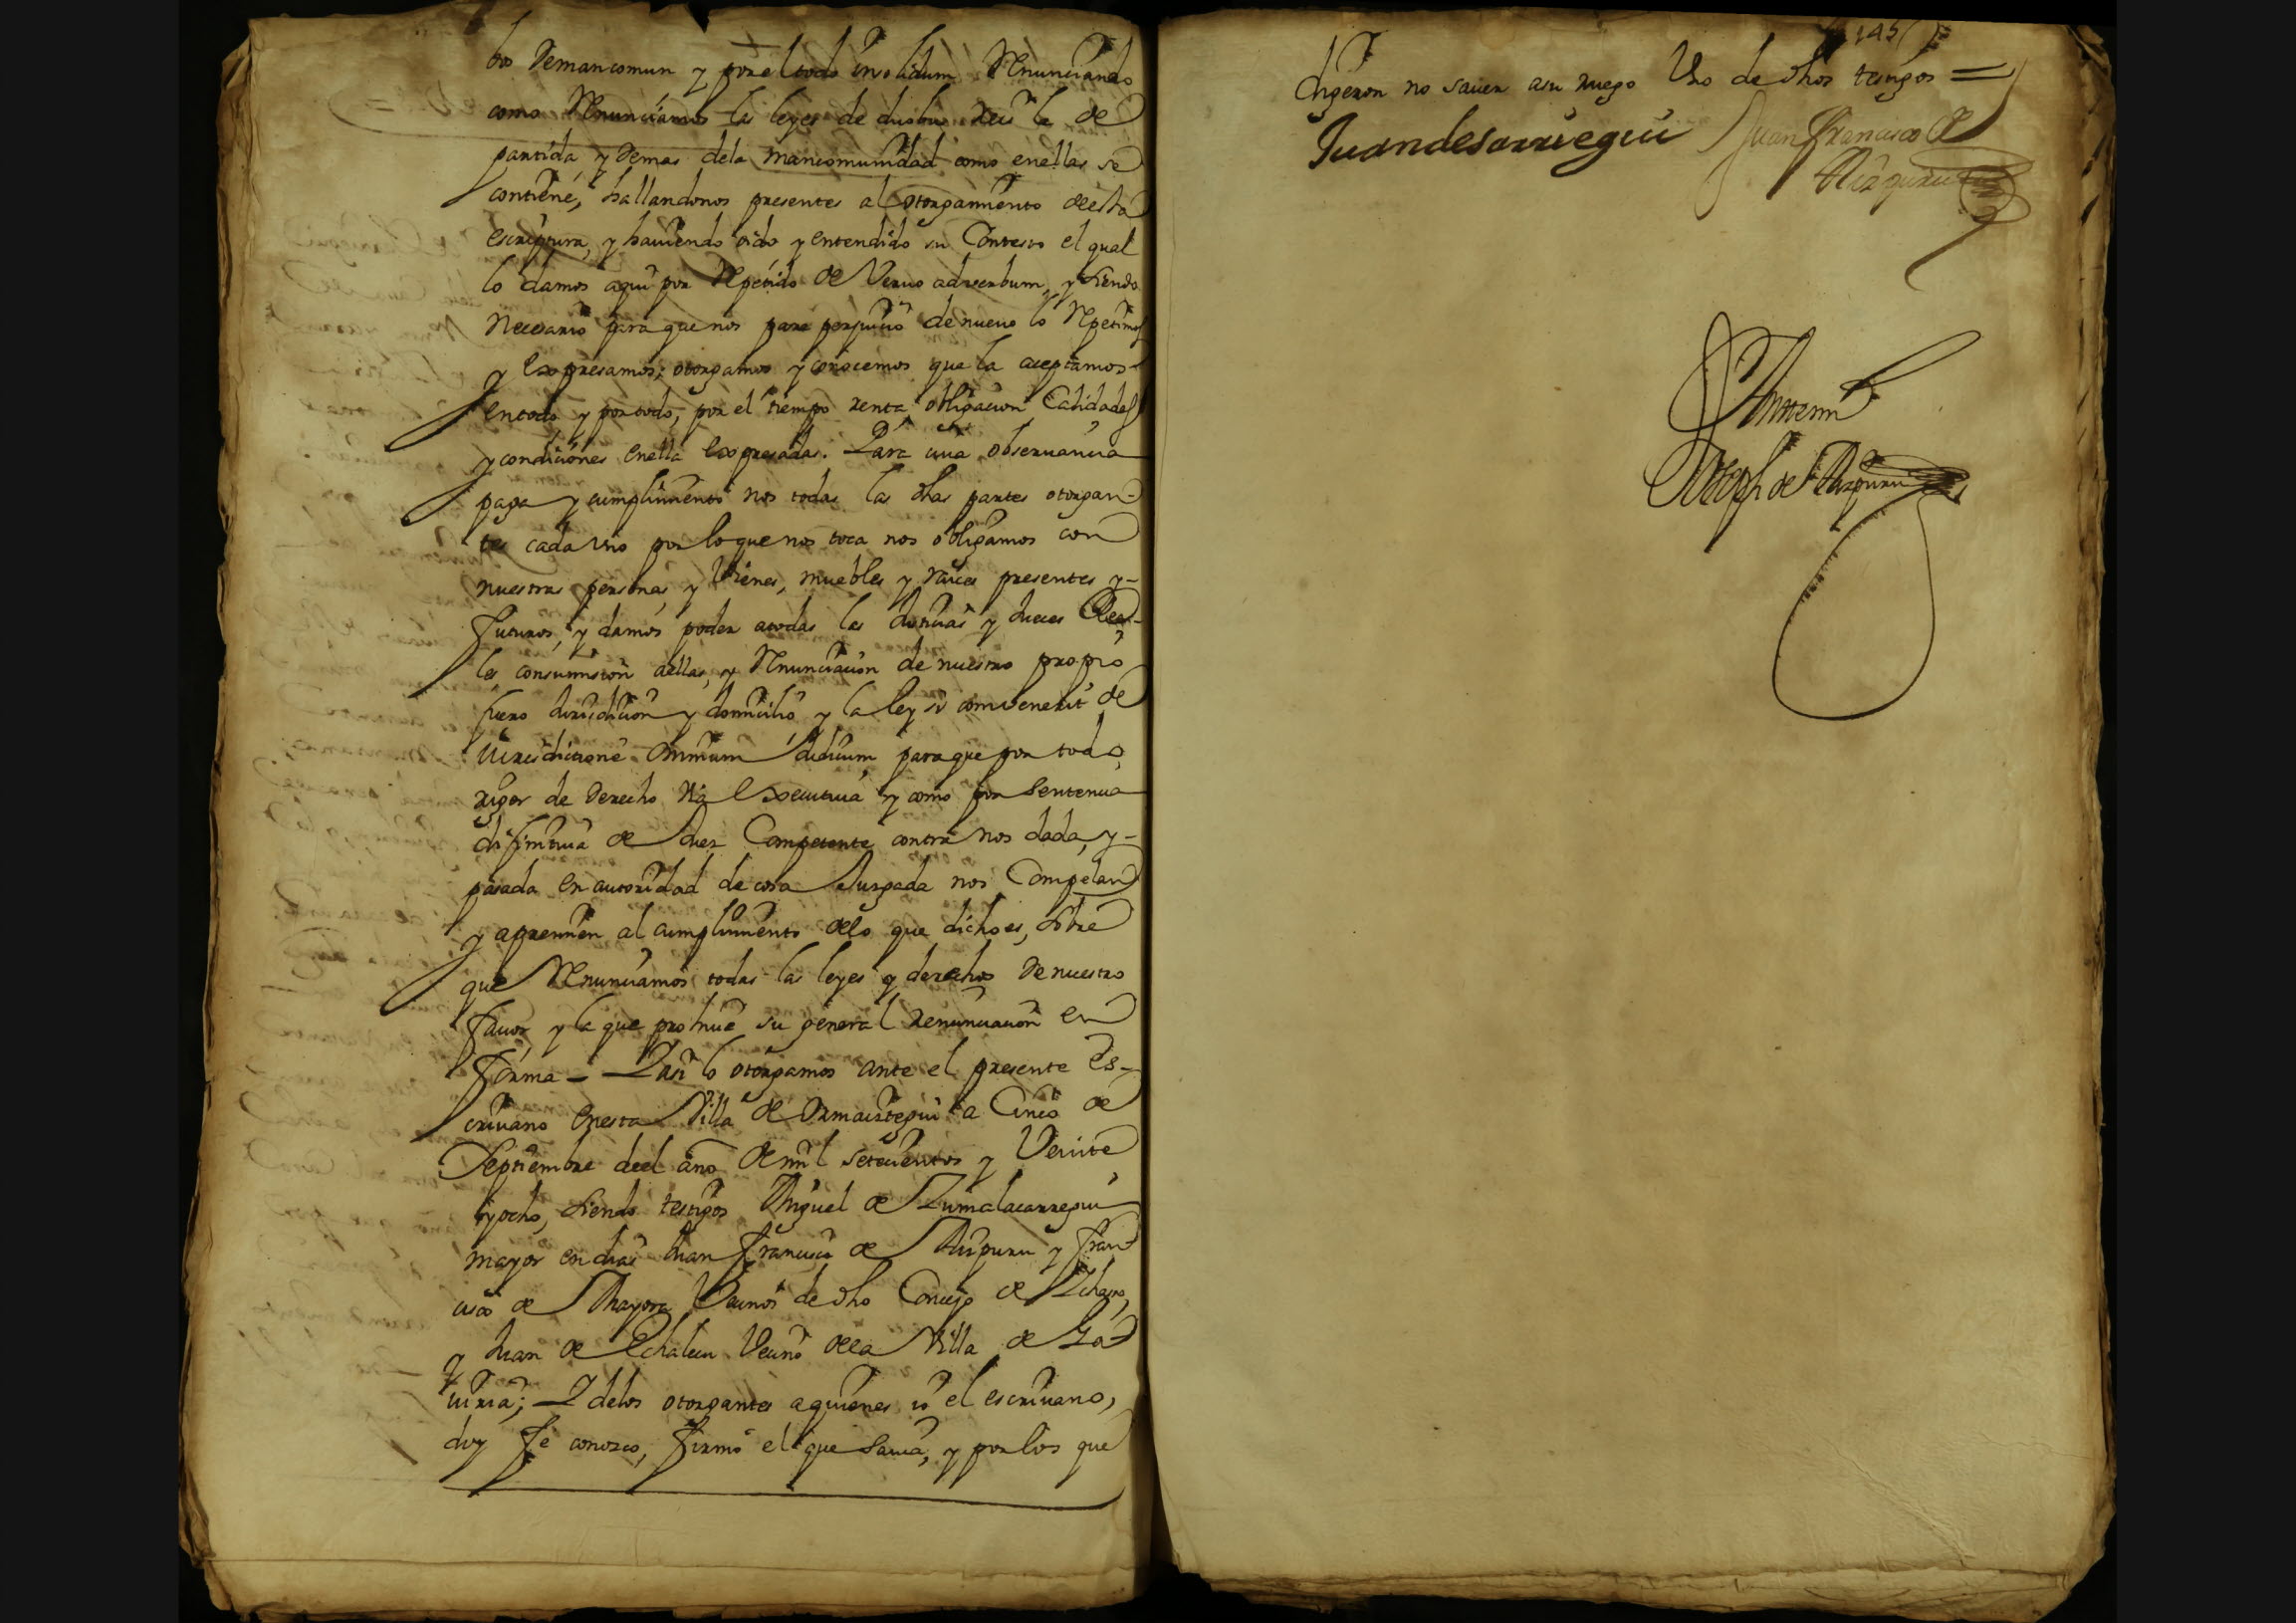 bos demancomun y por el todo insolidum Renunciando
como Renunciamos las leyes de duobus Reis la de
partida y demas dela mancomunidad como enellas se
contiene, hallandonos presentes al otorgamiento de esta
escriptura, y hauiendo oido y entendido su Contexto el qual
lo damos aqui por Repetido de Veruo adverbum, y siendo
Necesario para que nos pare perjuicio de nueuo lo Repetimos
y Expresamos; otorgamos y conocemos que la aceptamos
entodo y portodo, por el tiempo renta obligacion Calidades
y condiciones enella Expresadas. Para cuia obseruancia
paga y cumplimiento nos todas las dhas partes otorgan-
tes cada Vno por loque nos toca nos obligamos con
nuestras personas y Vienes, muebles y raices presentes y-
futuros, y damos poder atodas las Justicias y Jueces Rea-
les consumision aellas, y Renunciacion de nuestro propio
fuero Jurisdicion y domicilio y la ley si combenerit de
Iurisdictione Omnium Judicum paraque por todo
rigor de derecho Via Executiua y como por sentencia
difinitiua de Juez Competente contra nos dada, y-
pasada en autoridad de cosa Juzgada nos Compelan
y apremien al cumplimiento delo que dicho es, sobre
que Renunciamos todas las leyes y derechos de nuestro
fauor y la que prohiue su general renunciacion en
forma - Y asi lo otorgamos ante el presente Es-
criuano enesta Villa de Ormaiztegui a Cinco de
Septiembre deel año de mil setecientos y Veinte
yocho, siendo testigos Miguel de Zumalacarregui
mayor en dias Juan francisco de Aizpuru y fran
cisco de Mayora Vecinos de dho Concejo de Ichaso,
y Juan de Echalecu Vecino dela Villa de Za
uiria; Y delos otorgantes a quienes io el escriuano,
doy fe conozco, firmo el que sauia, y por los que
145
dijeron no sauer asu ruego Vno de dhos testigos =
Juan de sarriegui Juan Francisco de
Aizpuru
Antemi
Joseph de Aizpuru